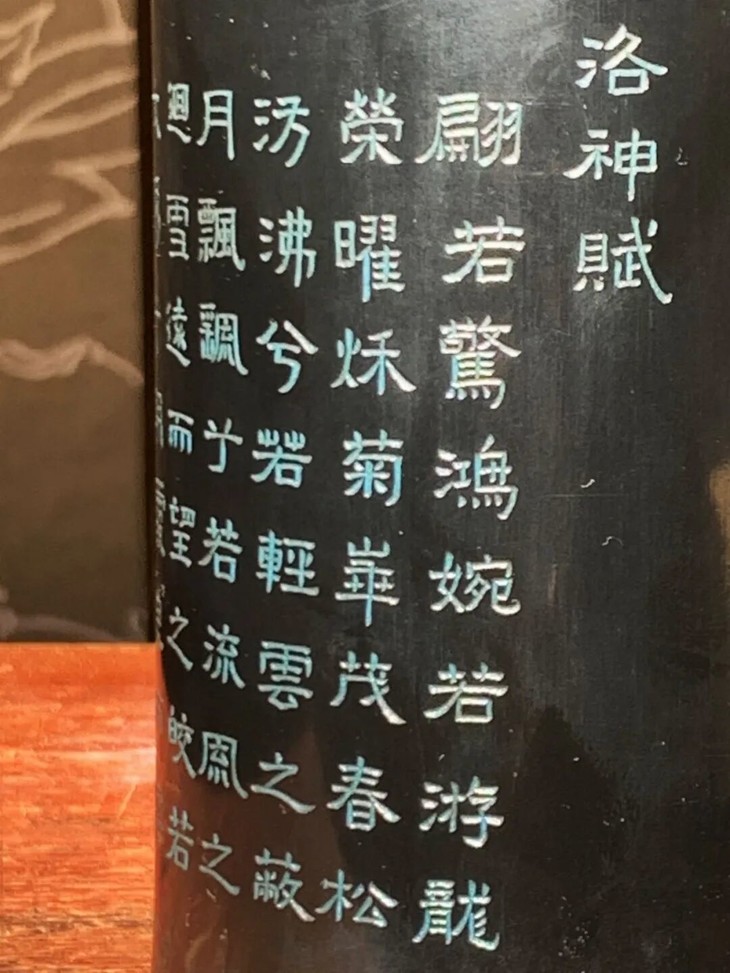 洛神賦
翩若驚鴻婉若游龍
榮曜秌菊崋茂春松
汸沸兮若輕雲之蔽
月飄颻乎若流風之
迴雪遠而望之皎若